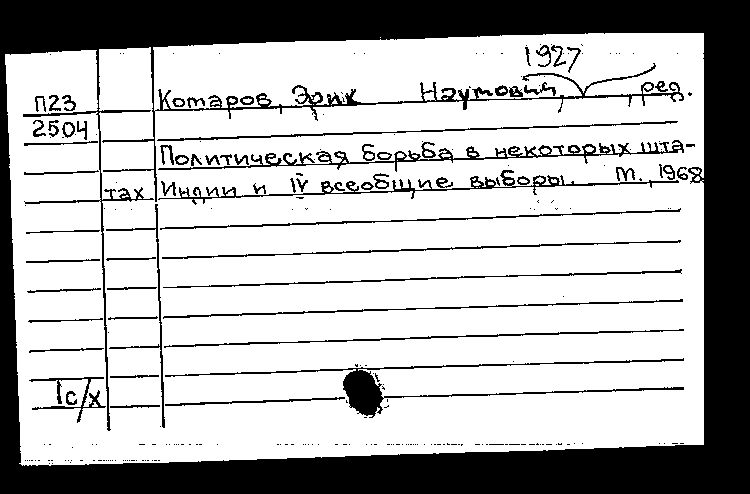 1927
П23 Котаров, Эрик Наумович, , ред.
2504
Политическая борьба в некоторых шта-
тах Индии и IV всеобщие выборы. М., 1968
1с/х